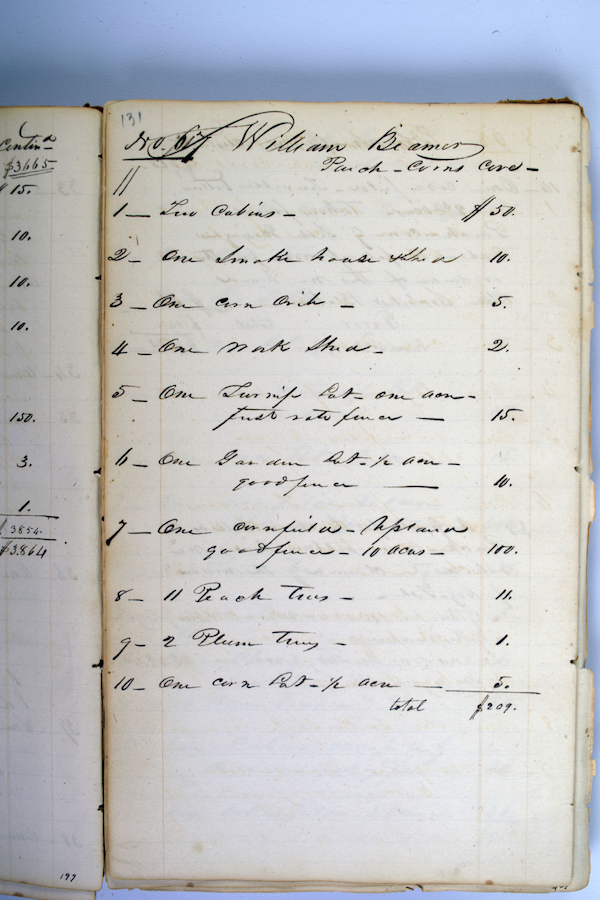 Contin^d
$3665
$15.
10.
10.
10.
150.
3.
1.
$3854.
$3.864
197
131
No. 67 William Beamer
Parch-Corns Cove-
11
1 - Two Cabins - $50.
2 - One Smoke house & Shed 10.
3 - One corn Crib - 5.
4 - One Work Shed - 2.
5 - One Turnip Lot - one acre -
first rate fence - 15.
6 - One Garden Lot - 1/2 acre -
good fence - 10.
7 - One cornfield - Upland
good fence - 10 acres - 100.
8 - 11 Peach Trees - 11.
9 - 2 Plum Trees - 1.
10 - One corn Lot - 1/2 acre - 5.
total $209.